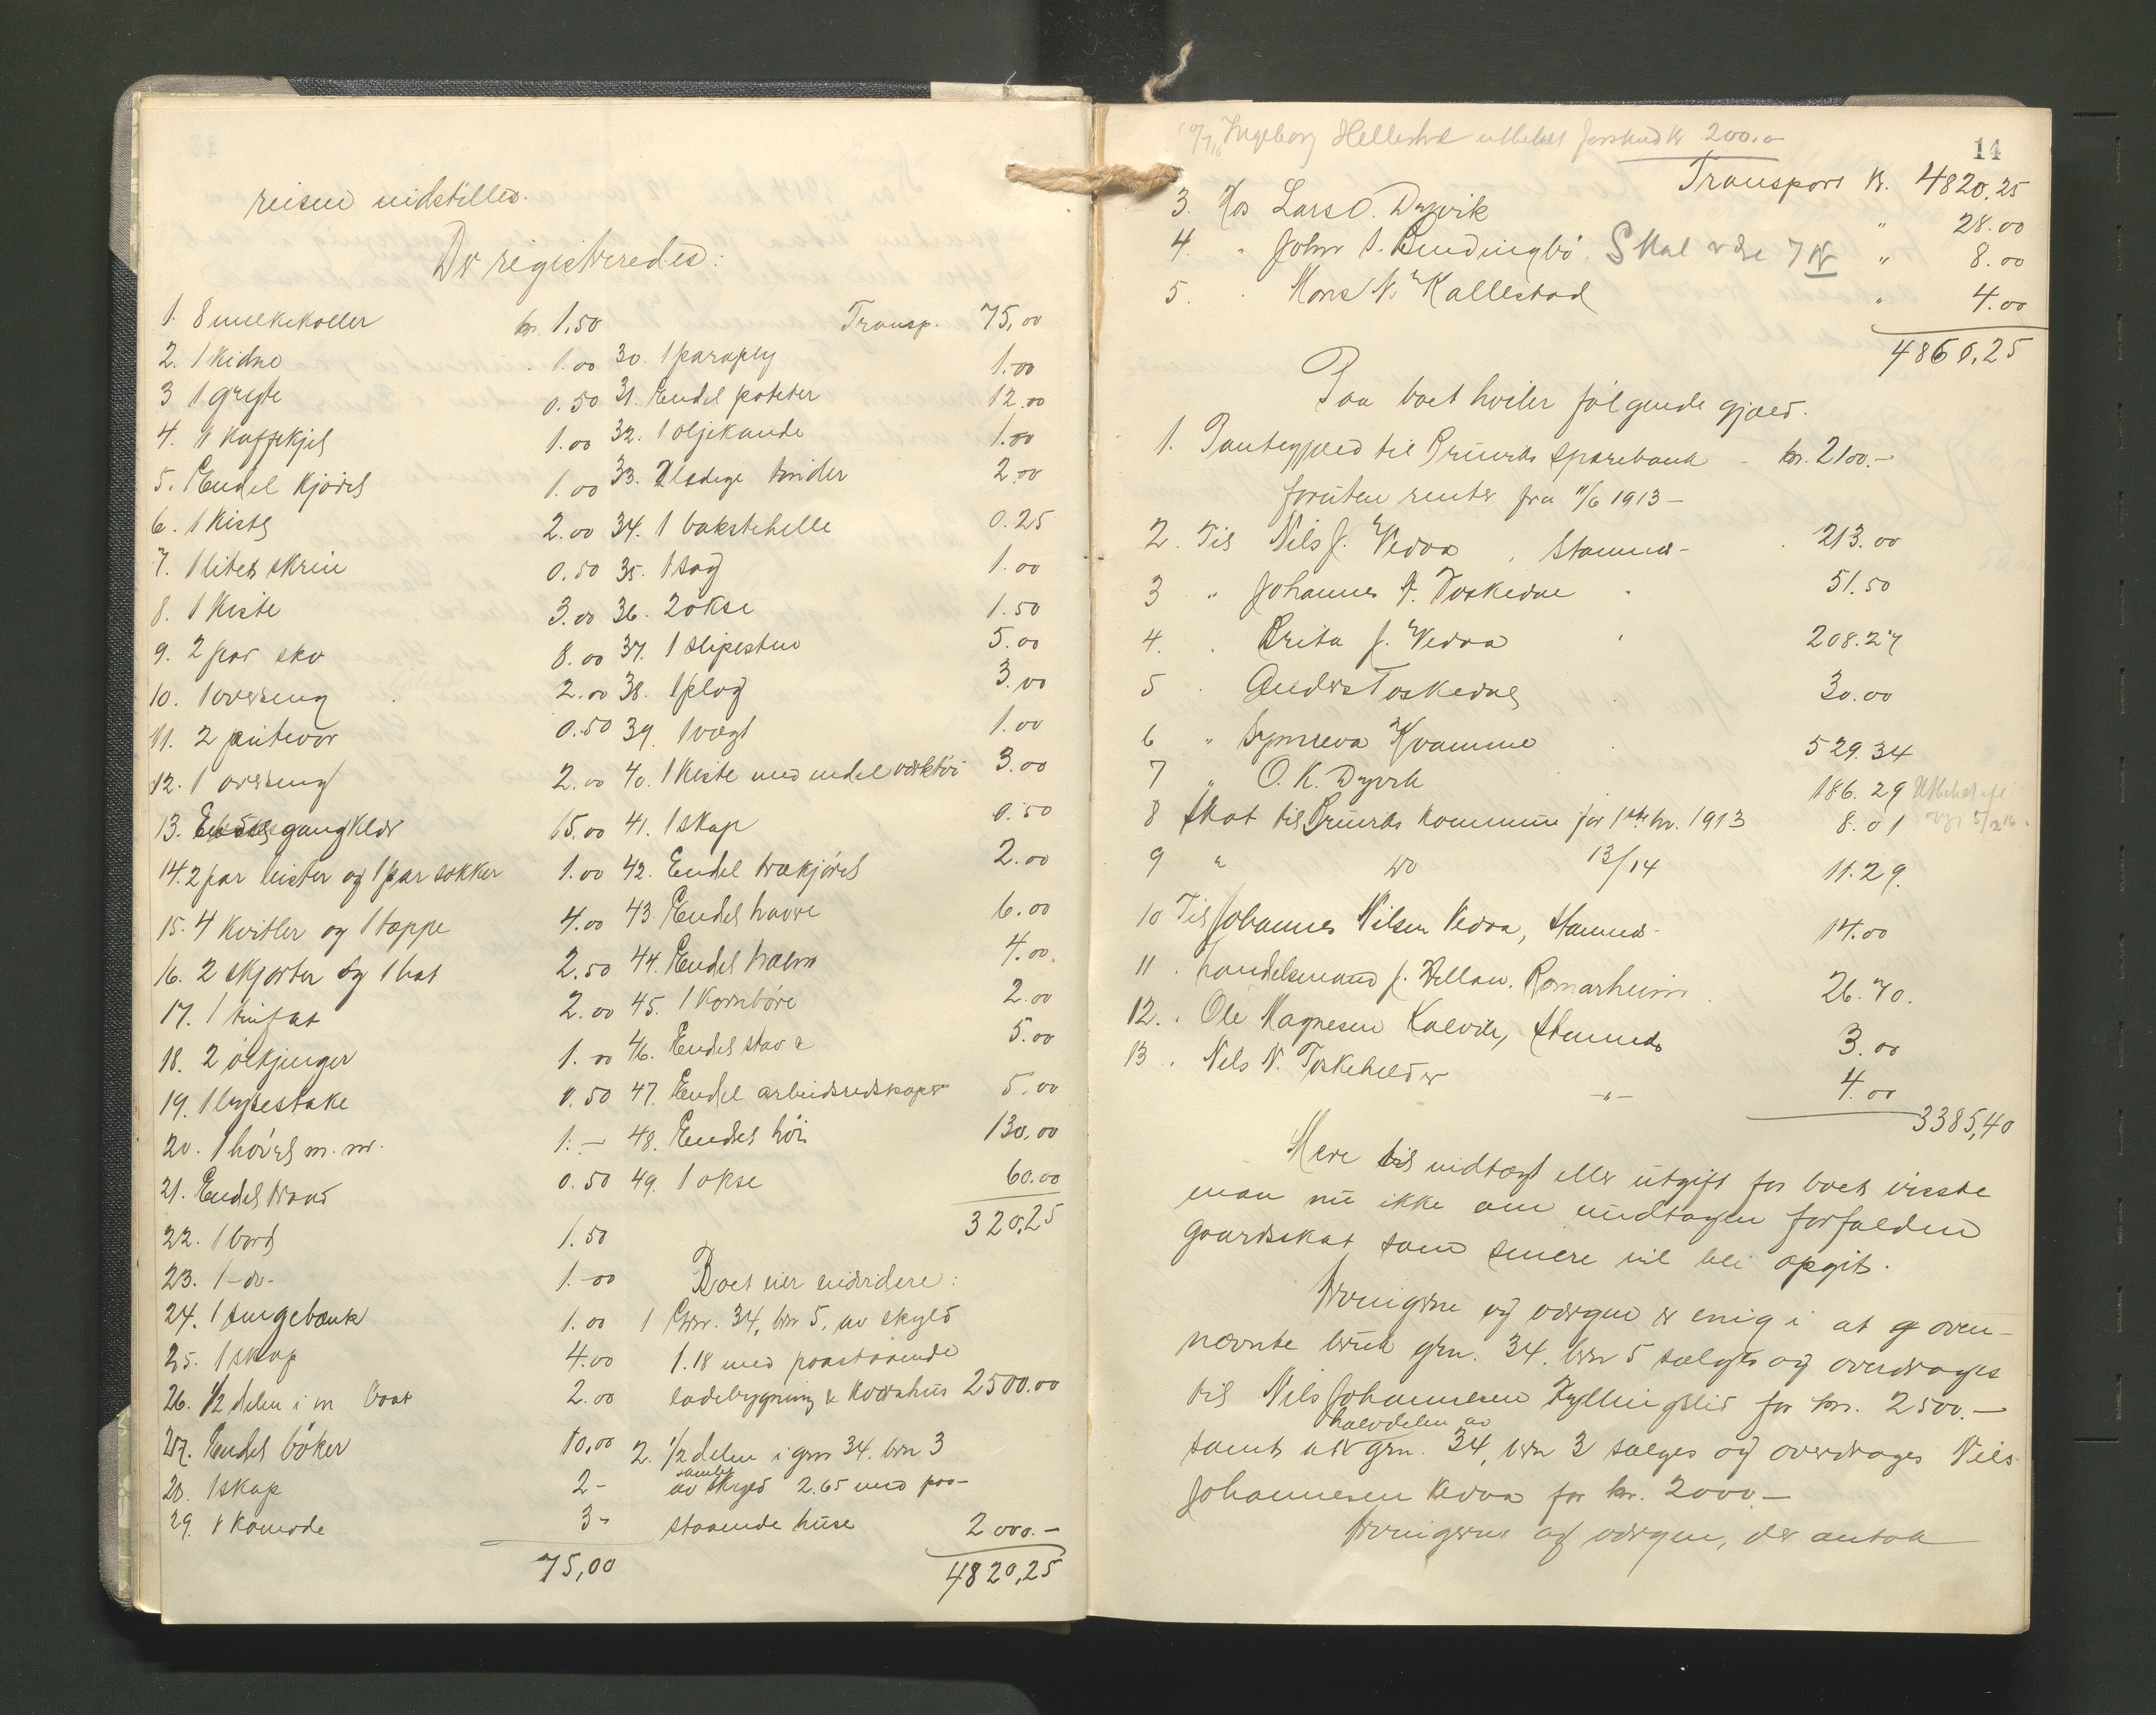 reisen indstilles.
Der registreredes:
1. 8 melkekoller kr. 1,50
2. 1 kidne 1.00
3 1 gryte 0.50
4. 1 kaffekjel 1.00
5. Endel kjørel 1.00
6. 1 kiste 2.00
7. 1 litet skrin 0.50
8. 1 kiste 3.00
9. 2 par sko 8.00
10. 1 overseng 2.00
11. 2 putevor 0.50
12. 1 overseng 2.00
13. Endel gangklær 15.00
14. 2 par leister og 1 par sokker 1.00
15. 4 kvitler og 1 tæppe 4.00
16. 2 skjorter og 1 hat 2.50
17. 1 tinfat 2.00
18. 2 ølkjenger 1.00
19. 1 lysestake 0.50
20. 1 høvel m. m. 1.-
21. Endel traad 0.50
22. 1 bord 1.50
23. 1 -do- 1.00
24. 1 sengebænk 1.00
25. 1 skap 4.00
26. 1/2 delen i en baat 2.00
27. Endel bøker 10,00
28. 1 skap 2-
29. 1 komode 3-
75,00
Transp. 75,00
30. 1 paraply 1.00
31. Endel poteter 12.00
32. 1 oljekande 1.00
33. Ulovlige tønder 2.00
34. 1 bakstehelle 0.25
35. 1 sag 1.00
36. 2 økse 1.50
37. 1 slipesten 5.00
38. 1 plog 3.00
39. 1 vægt 1.00
40. 1 kiste med endel verktøi 3.00
41. 1 skap 0.50
42. Endel trækjørel 2.00
43. Endel havre 6.00
44. Endel halm 4.00
45. 1 kornbøre 2.00
46. Endel stav 5.00
47. Endel arbeidsredskaper 5.00
48. Endel høi 130,00
49. 1 okse 60.00
320,25
Boet eier endvidere:
1 Gnr. 34, bnr 5, av skyld
1.18 med paastaaende
ladebygning & kværnhus 2500.00
2. 1/2 delen i gnr 34. brn 3
samlet
av skyld 2.65 med paa-
staaende huse 2000.-
4820,25
Ingeborg Hellestve utbetalt forskud kr 200.-
14
Transport kr. 4820,25
3. Hos Lars O. Dyrvik " 28.00
4. " John S. Rundingbø. Skal være 7 kr " 8.00
5. " Mons N. Kallestad " 4.00
4860,25
Paa boet hviler følgende gjæld.
1. Pantegjæld til Bruviks Sparebank - kr. 2100.-
foruten renter fra 11/6 1913-
2. Til Nils J. Vedaa, Stamnes- 213.00
3 " Johannes A. Toskedal " 51.50
4. " Brita J. Vedaa " 208.27
5 " Anders Toskedal " 30.00
6 " Synneva Kvamme " 529.34
7 " O. K. Dyvik 186.29
8 Skat til Bruviks kommune for 1ste hv. 1913 8.01
9 " do 13/14 11.29.
10 Til Johannes Nilsen Vedaa, Stamnes- 14.00
11 " handelsmand J. Romarheim 26.70.
12. " Ole Magnesen Kalvik, Stamnes 3.00
13 " Nils N. Toskehelder -"- 4.00
3385,40
Mere til indtægt eller utgift for boet visste
man nu ikke om undtagen forfalden
gaardsskat som senere vil bli opgit.
Arvingerne og værgen er enig i at oven-
nævnte bruk gnr. 34. brn 5 sælges og overdrages
til Nils Johannesen Fyllingslid for kr. 2500.-
halvdelen av
samt at gnr. 34, brn 3 sælges og overdrages Nils
Johannesen Vedaa for kr. 2000.-
Arvingerne og værgen, der antok